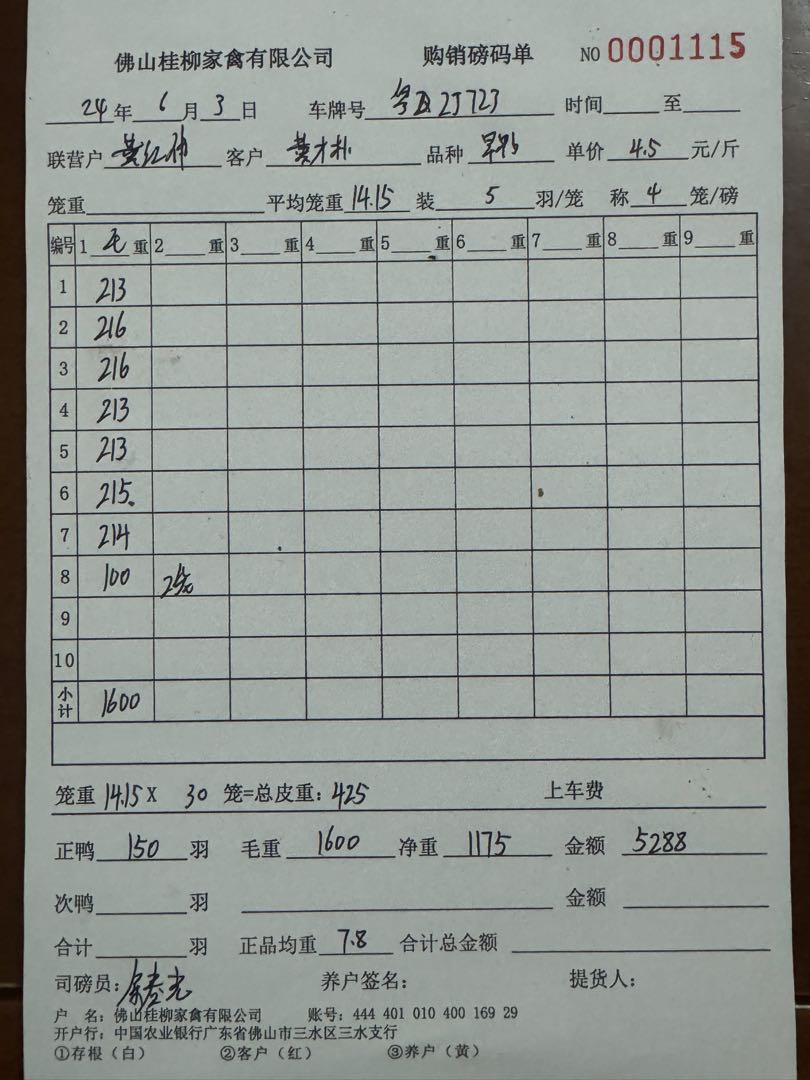 佛山桂柳家禽有限公司 购销磅码单 NO 0001115
24年6月3日 车牌号 2J723 时间 至
联营户 黄红 客户 黄才 品种 单价 4.5 元/斤
笼重 平均笼重 14.15 装 5 羽/笼 称 4 笼/磅
编号 1 毛 重 2 重 3 重 4 重 5 重 6 重 7 重 8 重 9 重
1 213
2 216
3 216
4 213
5 213
6 215
7 214
8 100
9
10
小计 1600
笼重 14.15 X 30 笼=总皮重: 425 上车费
正鸭 150 羽 毛重 1600 净重 1175 金额 5288
次鸭 羽 金额
合计 羽 正品均重 7.8 合计总金额
司磅员: 养户签名: 提货人:
户 名: 佛山桂柳家禽有限公司 账号: 444 401 010 400 169 29
开户行: 中国农业银行广东省佛山市三水区三水支行
①存根（白） ②客户（红） ③养户（黄）